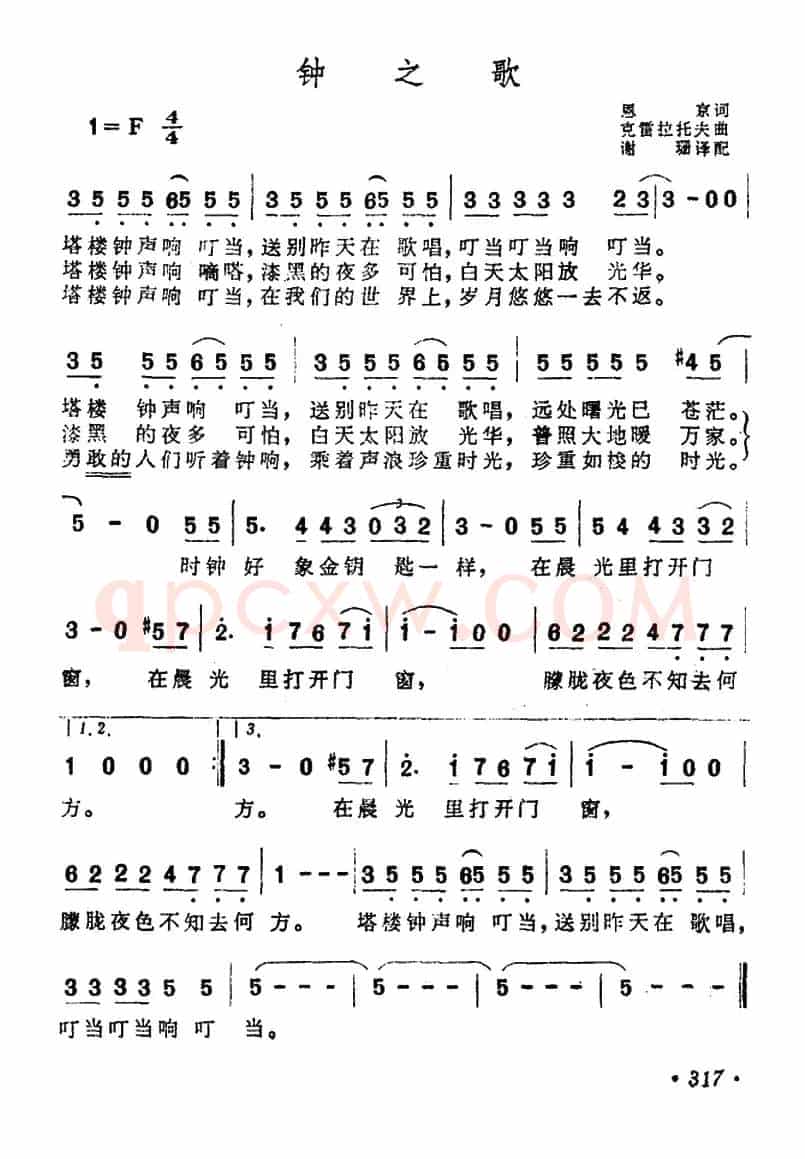 钟之歌
1=F 4/4
恩京词
克雷拉托夫曲
谢珊译配
3 5 5 5 65 5 5 | 3 5 5 5 65 5 5 | 3 3 3 3 3 3 2 3 | 3 - 0 0
塔楼钟声响 叮当,送别昨天在 歌唱,叮当叮当响 叮当。
塔楼钟声响 嘀嗒,漆黑的夜多 可怕,白天太阳放 光华。
塔楼钟声响 叮当,在我们的世 界上,岁月悠悠一去不返。
3 5 5 5 6 5 5 5 | 3 5 5 5 6 5 5 5 | 5 5 5 5 5 #4 5 |
塔楼 钟声响 叮当, 送别昨天在 歌唱, 远处曙光已 苍茫。
漆黑 的夜多 可怕, 白天太阳放 光华, 普照大地暖 万家。
勇敢的人们听着钟响, 乘着声浪珍重时光, 珍重如梭的 时光。
5 - 0 5 5 | 5. 4 4 3 0 3 2 | 3 - 0 5 5 | 5 4 4 3 3 2
3
时钟 好 象金钥 匙一 样, 在晨 光里打开门
qpcxw.com
3 - 0 #5 7 | 2. 1 7 6 7 1 | 1 - 1 0 0 | 6 2 2 2 4 7 7 7
窗, 在晨 光 里打开门 窗, 朦胧夜色不知去何
1.2. 3.
1 0 0 0 :| 3 - 0 #5 7 | 2. 1 7 6 7 1 | 1 - 1 0 0 |
方。 方。 在晨 光 里打开门 窗,
6 2 2 2 4 7 7 7 | 1 - - - | 3 5 5 5 65 5 5 | 3 5 5 5 65 5 5
朦胧夜色不知去何 方。 塔楼钟声响 叮当,送别昨天在 歌唱,
3 3 3 3 5 5 5 | 5 - - - | 5 - - - | 5 - - - | 5 - - ‖
叮当叮当响 叮 当。
·317·